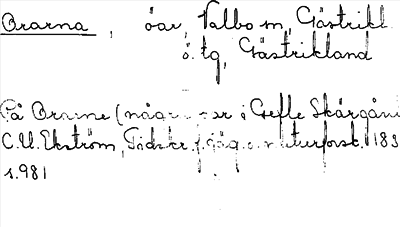 Orarna, öar, Valbo sn, Gästrikl
ö. tg, Gästrikland
På Orarne (några öar i Gefle Skärgård
C.U. Ekström, Tidskr. f. jäg. o. naturforsk. 183
s. 981